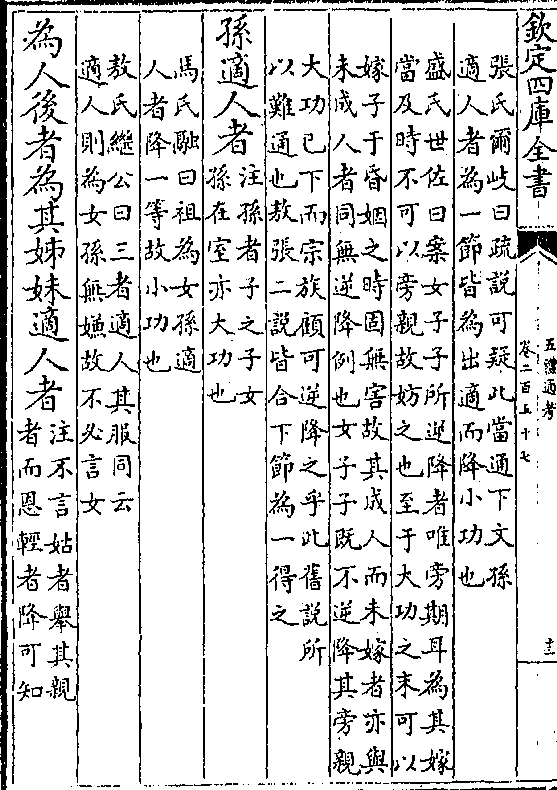 欽定四庫全書
五禮通考
卷二百五十七
十三
張氏爾岐曰疏說可疑此當通下文孫
適人者為一節皆為出適而降小功也
盛氏世佐曰案女子子所逆降者唯旁期耳為其嫁
當及時不可以旁親故妨之也至于大功之末可以
嫁子于昏姻之時固無害故其成人而未嫁者亦與
未成人者同無逆降例也女子子既不逆降其旁親
大功已下而宗族顧可逆降之乎此舊說所
以難通也敖張二說皆合下節為一得之
孫適人者
注孫者子之子女
孫在室亦大功也
馬氏融曰祖為女孫適
人者降一等故小功也
敖氏繼公曰三者適人其服同云
適人則為女孫無嫌故不必言女
為人後者為其姊妹適人者
注不言姑者舉其親
者而恩輕者降可知